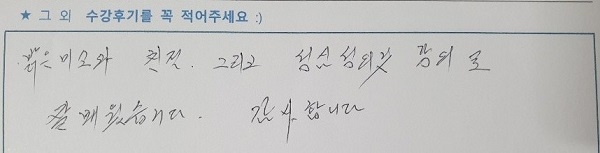 ★ 그 외 수강후기를 꼭 적어주세요 :)
밝은미소와 친절. 그리고 성심성의껏 강의로
잘 배웠습니다. 감사합니다